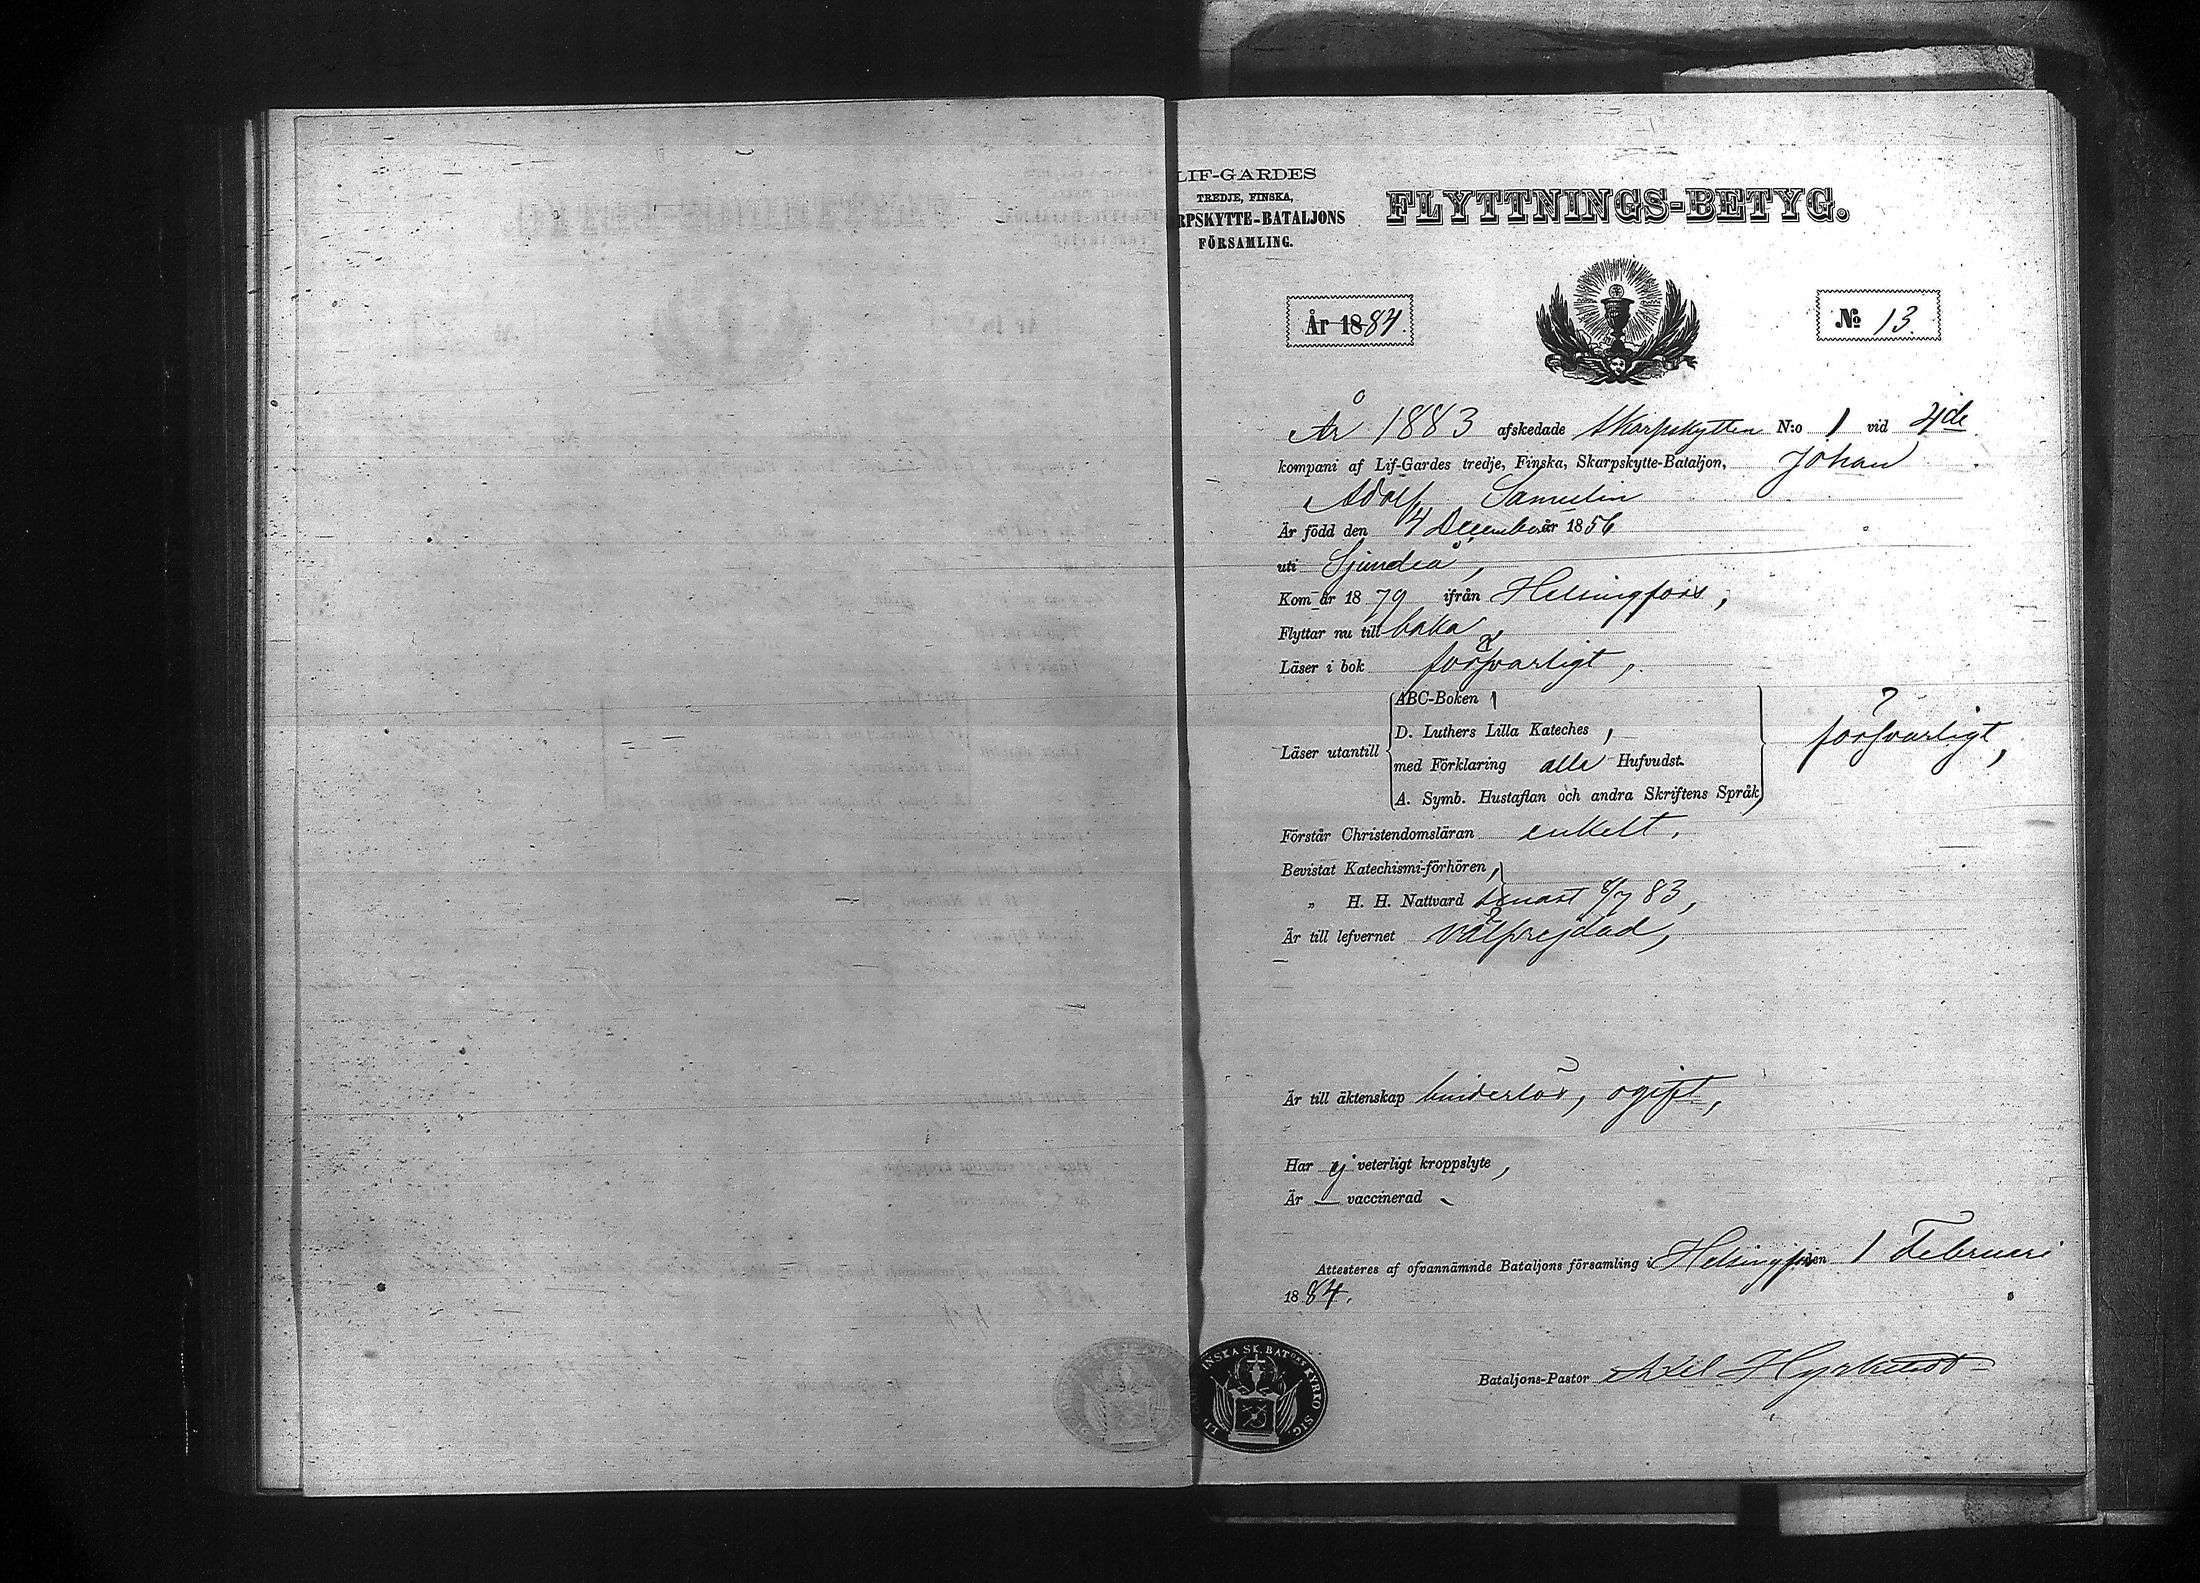 LIF-GARDES
TREDJE, FINSKA,
RPSKYTTE-BATALJONS
FÖRSAMLING.
FLYTTNINGS-BETYG.
År 1884.
№ 13.
År 1883 afskedade Skarpskytten N:o 1 vid 4de
kompani af Lif-Gardes tredje, Finska, Skarpskytte-Bataljon, Johan
Adolf Samulin
Är född den 4 December år 1856
uti Sjundeå,
Kom år 1879 ifrån Helsingfors,
Flyttar nu till baka,
Läser i bok försvarligt,
ABC-Boken,
D. Luthers Lilla Kateches,
Läser utantill
med Förklaring alla Hufvudst.
A. Symb. Hustaflan och andra Skriftens Språk
försvarligt,
Förstår Christendomsläran enkelt,
Bevistat Katechismi-förhören,
„ H. H. Nattvard senast 8/7 83,
Är till lefvernet välfrejdad,
Är till äktenskap hinderlös, ogift,
Har ej veterligt kroppslyte,
Är — vaccinerad
Attesteres af ofvannämnde Bataljons församling i Helsingfors den 1 Februari
1884.
Bataljons-Pastor Axel Hyrkstedt
INSKA SK. BAT:ONS KYRKO SIG.